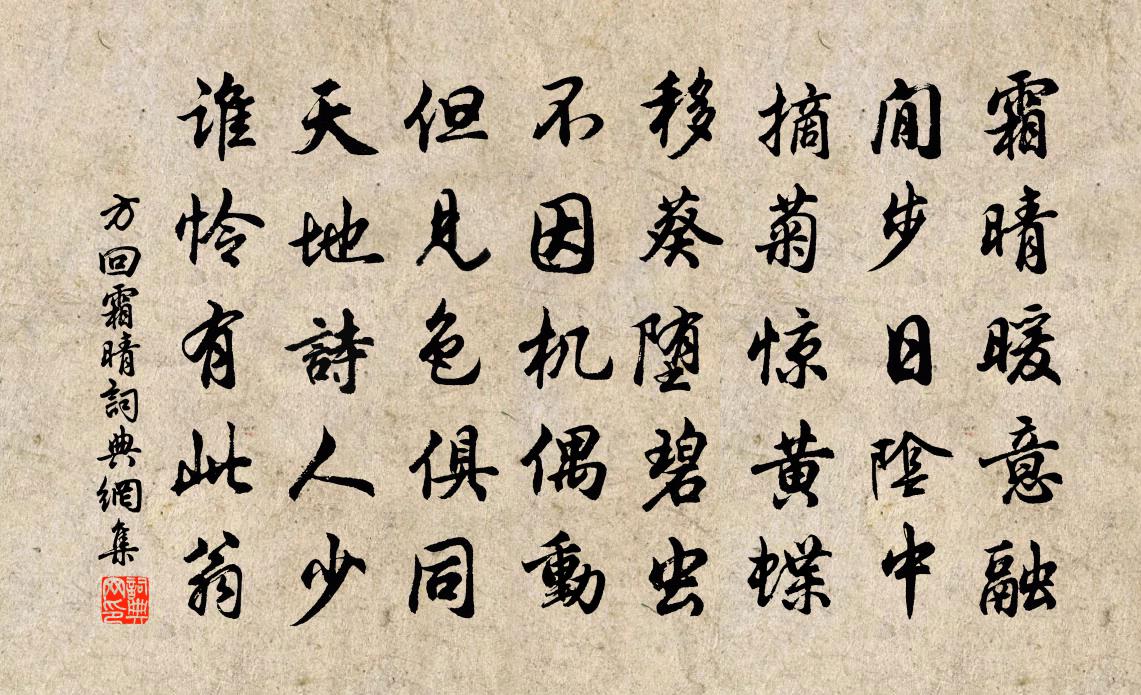 霜晴暖意融
閒步日陰中
摘菊惊黃蝶
移葵堕碧虫
不因机偶動
但見色俱同
天地詩人少
谁怜有此翁
方回霜晴詞典網集
詞典
网印